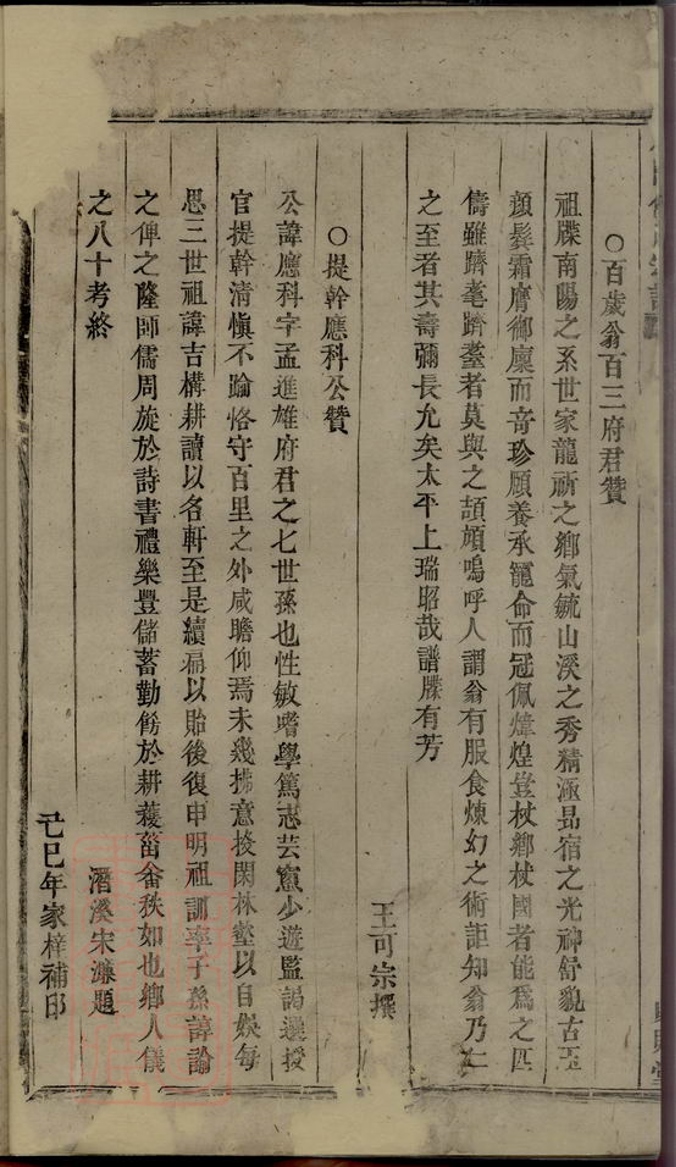 ○百歲翁百三府君贊
祖牒南陽之系世家龍祈之鄉氣毓山溪之秀精涵昻宿之光神舒貌古玉
顏髮霜膺御廩而竒珍頤養承寵命而冠佩煒煌豈杖鄉杖國者能爲之匹
儔雖躋耄躋耋者莫與之頡頏嗚呼人謂翁有服食煉幻之術詎知翁乃仁
之至者其壽彌長允矣太平上瑞昭哉譜牒有芳
王可宗撰
○提幹應科公贊
公諱應科字孟進雄府君之七世孫也性敏嗜學篤志芸窻少遊監謁選授
官提幹清愼不踰恪守百里之外咸瞻仰焉未幾拂意投閑林壑以自娛每
思三世祖諱吉構耕讀以名軒至是續扁以貽後復申明祖訓率子孫諱論
之俾之隆師儒周旋於詩書禮樂豐儲蓄勤餙於耕蓛菑畬秩如也鄉人儀
之八十考終
潛溪宋濂題
己巳年家梓補印